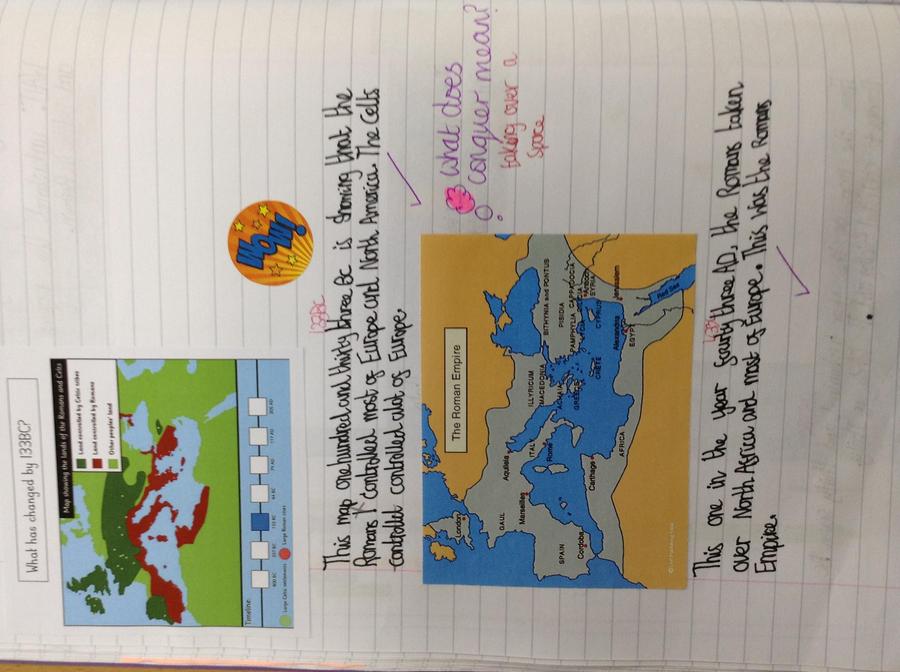 What has changed by 133BC?
Map showing the lands of the Romans and Celts
Land controlled by Celtic tribes
Land controlled by Romans
Other peoples' land
Timeline:
800 BC
133 BC
44 BC
117 AD
305 AD
Large Celtic settlements
Large Roman cities
WOW!
133BC
This map one hundred and thirty three BC is showing that the
Romans Controlled most of Europe and North America. The Celts
controlled alot of Europe.
What does
conquer mean?
taking over a
space
The Roman Empire
London
GAUL
Aquileia
Marseilles
ITALY
Rome
SPAIN
Cordoba
Carthage
AFRICA
ILLYRICUM
MACEDONIA
ACHAIA
GREECE
CRETE
BITHYNIA and PONTUS
PISIDIA
PAMPHYLIA
CAPPADOCIA
LYCIA
CILICIA
Antioch
SYRIA
CYPRUS
Jerusalem
Alexandria
EGYPT
Red Sea
This one in the year fourty three AD, the Romans taken
over North Africa and most of Europe. This was the Romans
Empire.